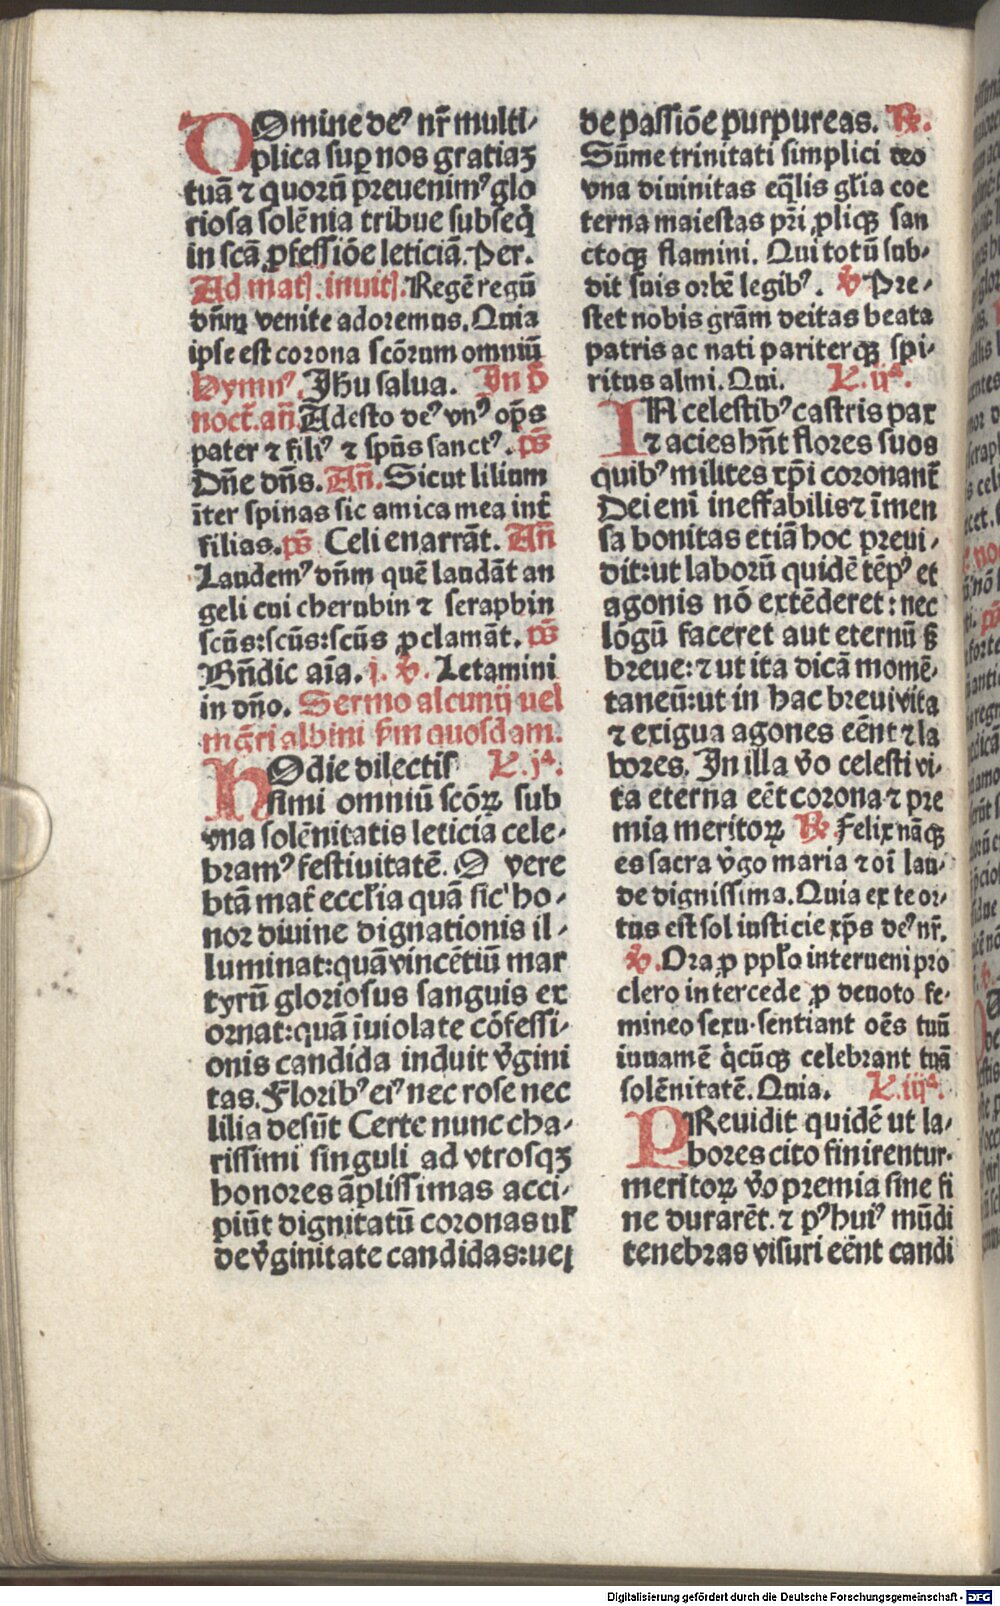 DOmine deꝰ nr̄ multi-
plica suꝑ nos gratiaꝫ
tuā ⁊ quorū preuenimꝰ glo
riosa solēnia tribue subseq̄
in scā ꝓfessiōe leticiā. Per.
Ad mat. inuit. Regē regū
dn̄m venite adoremus. Quia
ipse est corona scōrum omniū
Hymnꝰ. Jhu salua. In p̄
noct. an̄. Adesto deꝰ vnꝰ op̄s
pater ⁊ filiꝰ ⁊ spūs sanctꝰ. ps̄
Dn̄e dn̄s. An̄. Sicut lilium
īter spinas sic amica mea int̄
filias. ps̄ Celi enarrāt. An̄
Laudemꝰ dn̄m quē laudāt an
geli cui cherubin ⁊ seraphin
scūs: scūs: scūs ꝓclamāt. ps̄
Bn̄dic aīa. j. v̄. Letamini
in dn̄o. Sermo alcunij uel
mḡri albini sm quosdam.
HOdie dilectis L. jª.
simi omniū scōꝝ sub
vna solēnitatis leticia cele-
bramꝰ festiuitatē. O vere
btā mat̄ eccl̄ia quā sic ho-
nor diuine dignationis il-
luminat: quā vincētiū mar
tyrū gloriosus sanguis ex
ornat: quā īuiolate cōfessi-
onis candida induit v̄gini
tas. Floribꝰ eiꝰ nec rose nec
lilia desūt Certe nunc cha-
rissimi singuli ad vtrosqꝫ
honores āplissimas acci-
piūt dignitatū coronas ul̄
de v̄ginitate candidas: uel
de passiōe purpureas. ℞.
Sūme trinitati simplici deo
vna diuinitas eq̄lis gl̄ia coe
terna maiestas pr̄i ꝓliqꝫ san
ctoqꝫ flamini. Qui totū sub-
dit suis orbē legibꝰ. v̄ Pre-
stet nobis grām deitas beata
patris ac nati pariterqꝫ spi-
ritus almi. Qui. L. ijª.
IN celestibꝰ castris pax
⁊ acies hn̄t flores suos
quibꝰ milites xp̄i coronant̄
Dei eni ineffabilis ⁊ īmen
sa bonitas etiā hoc preui-
dit: ut laborū quidē tēpꝰ et
agonis nō extēderet: nec
lōgū faceret aut eternū ß
breue: ⁊ ut ita dicā momē-
taneū: ut in hac breui vita
⁊ exigua agones eēnt ⁊ la
bores. In illa v̄o celesti vi-
ta eterna eēt corona ⁊ pre
mia meritoꝝ ℞ Felix nāqꝫ
es sacra v̄go maria ⁊ oī lau-
de dignissima. Quia ex te or-
tus est sol iusticie xp̄s deꝰ nr̄.
v̄. Ora ꝓ ppl̄o interueni pro
clero intercede ꝓ deuoto fe-
mineo sexu. sentiant oēs tuū
iuuamē q̄cūqꝫ celebrant tuā
solēnitatē. Quia. L. iijª.
PReuidit quidē ut la-
bores cito finirentur.
meritoꝝ v̄o premia sine fi
ne durarēt. ⁊ pꝰ huiꝰ mūdi
tenebras visuri eēnt candi
Digitalisierung gefördert durch die Deutsche Forschungsgemeinschaft - DFG